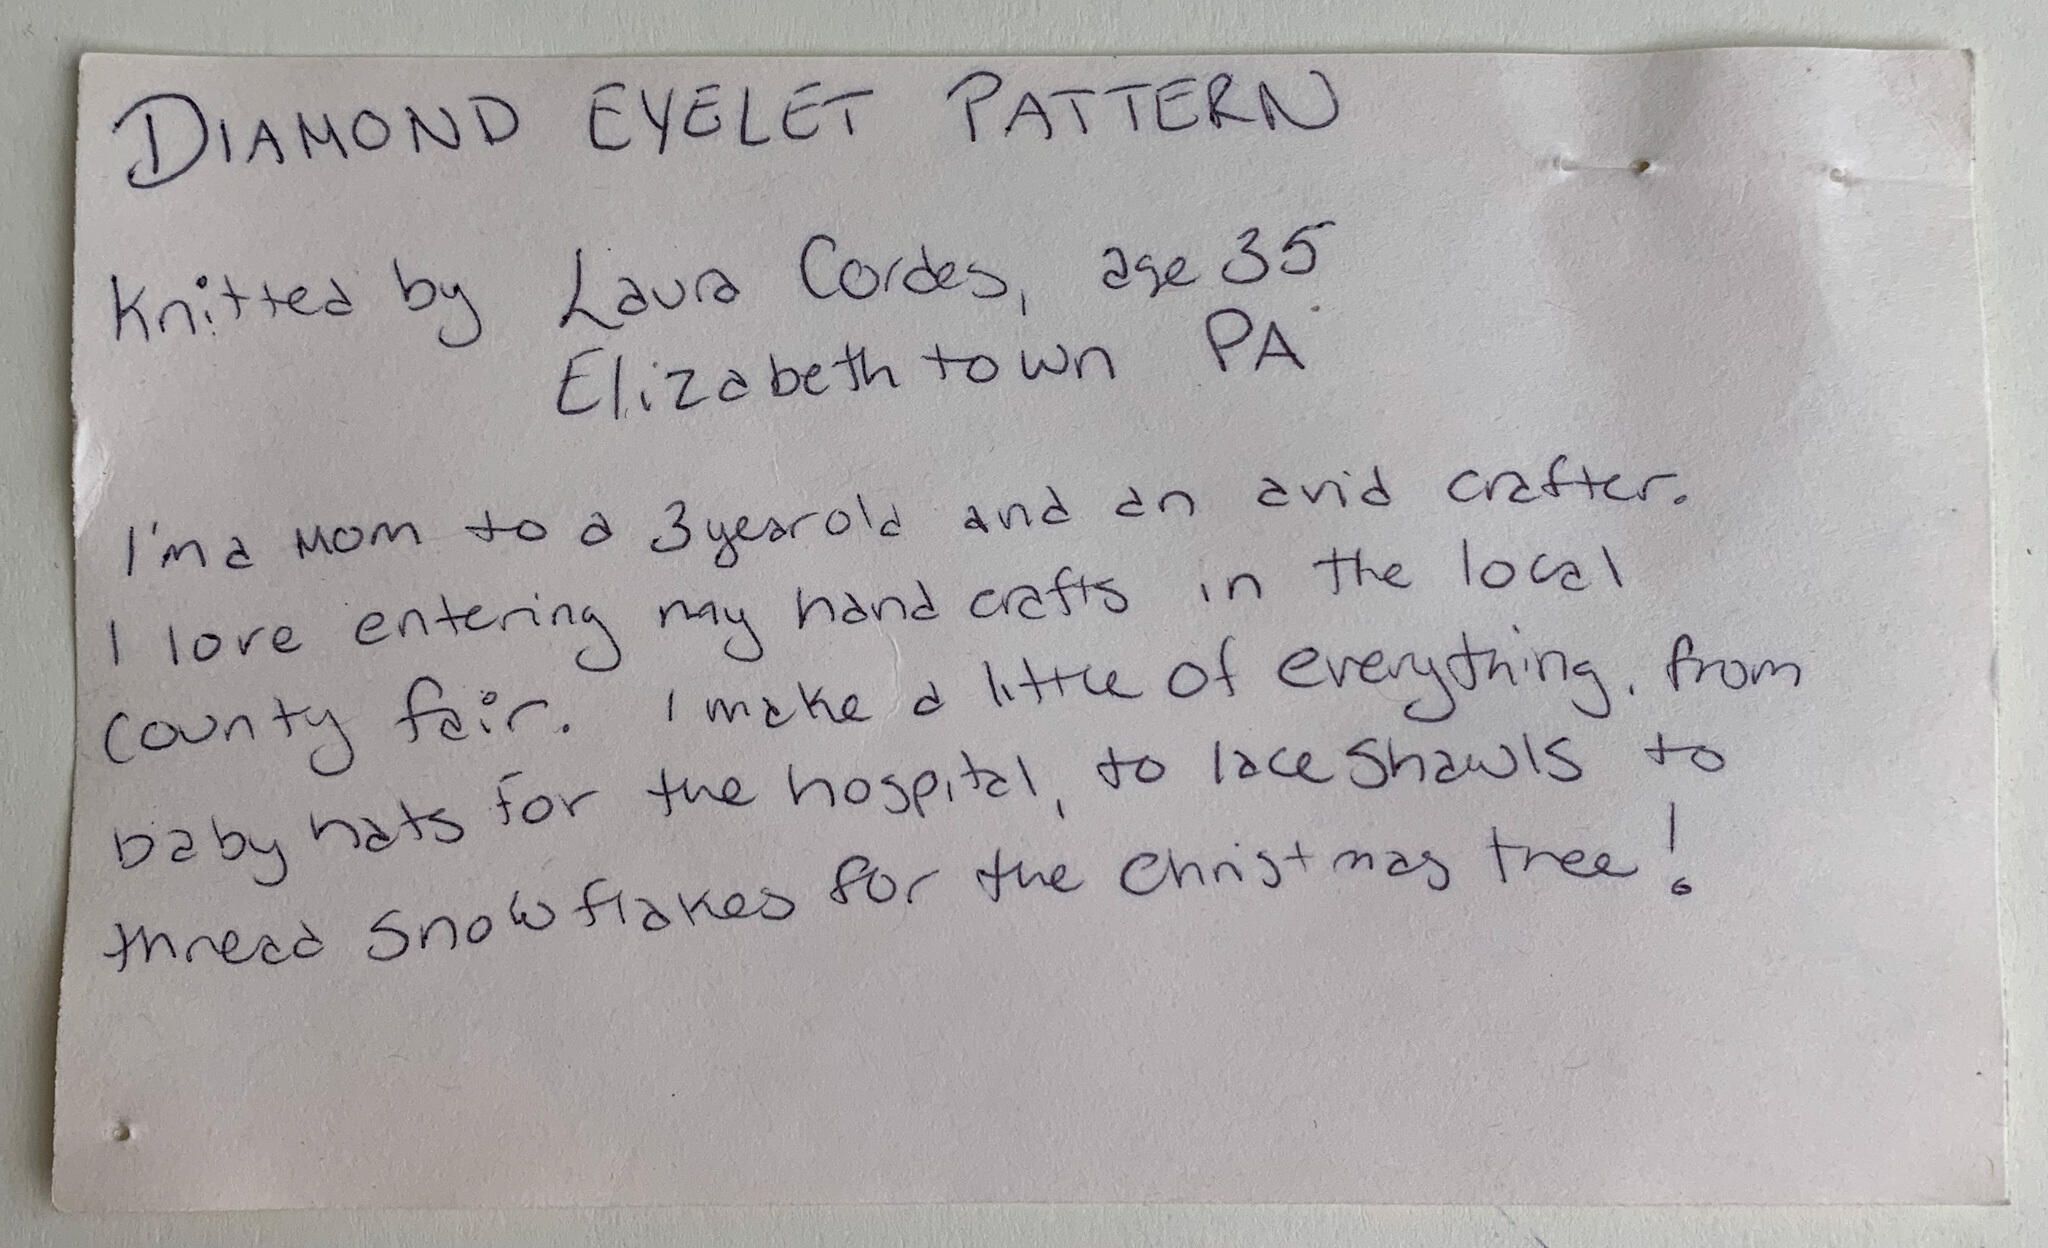 DIAMOND EYELET PATTERN
Knitted by Laura Cordes, age 35
Elizabethtown PA
I'm a mom to a 3 year old and an avid crafter.
I love entering my hand crafts in the local
county fair. I make a little of everything, from
baby hats for the hospital, to lace shawls to
thread snowflakes for the Christmas tree!